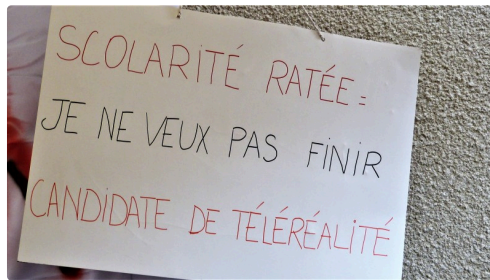 SCOLARITÉ RATÉE =
JE NE VEUX PAS FINIR
CANDIDATE DE TÉLÉRÉALITÉ